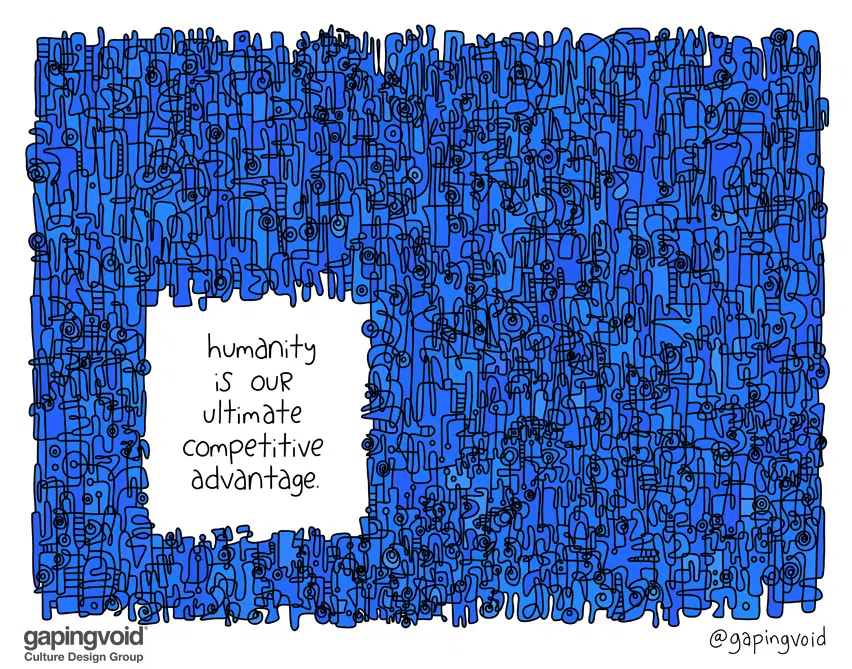 humanity
is our
ultimate
competitive
advantage.
gapingvoid®
Culture Design Group
@gapingvoid